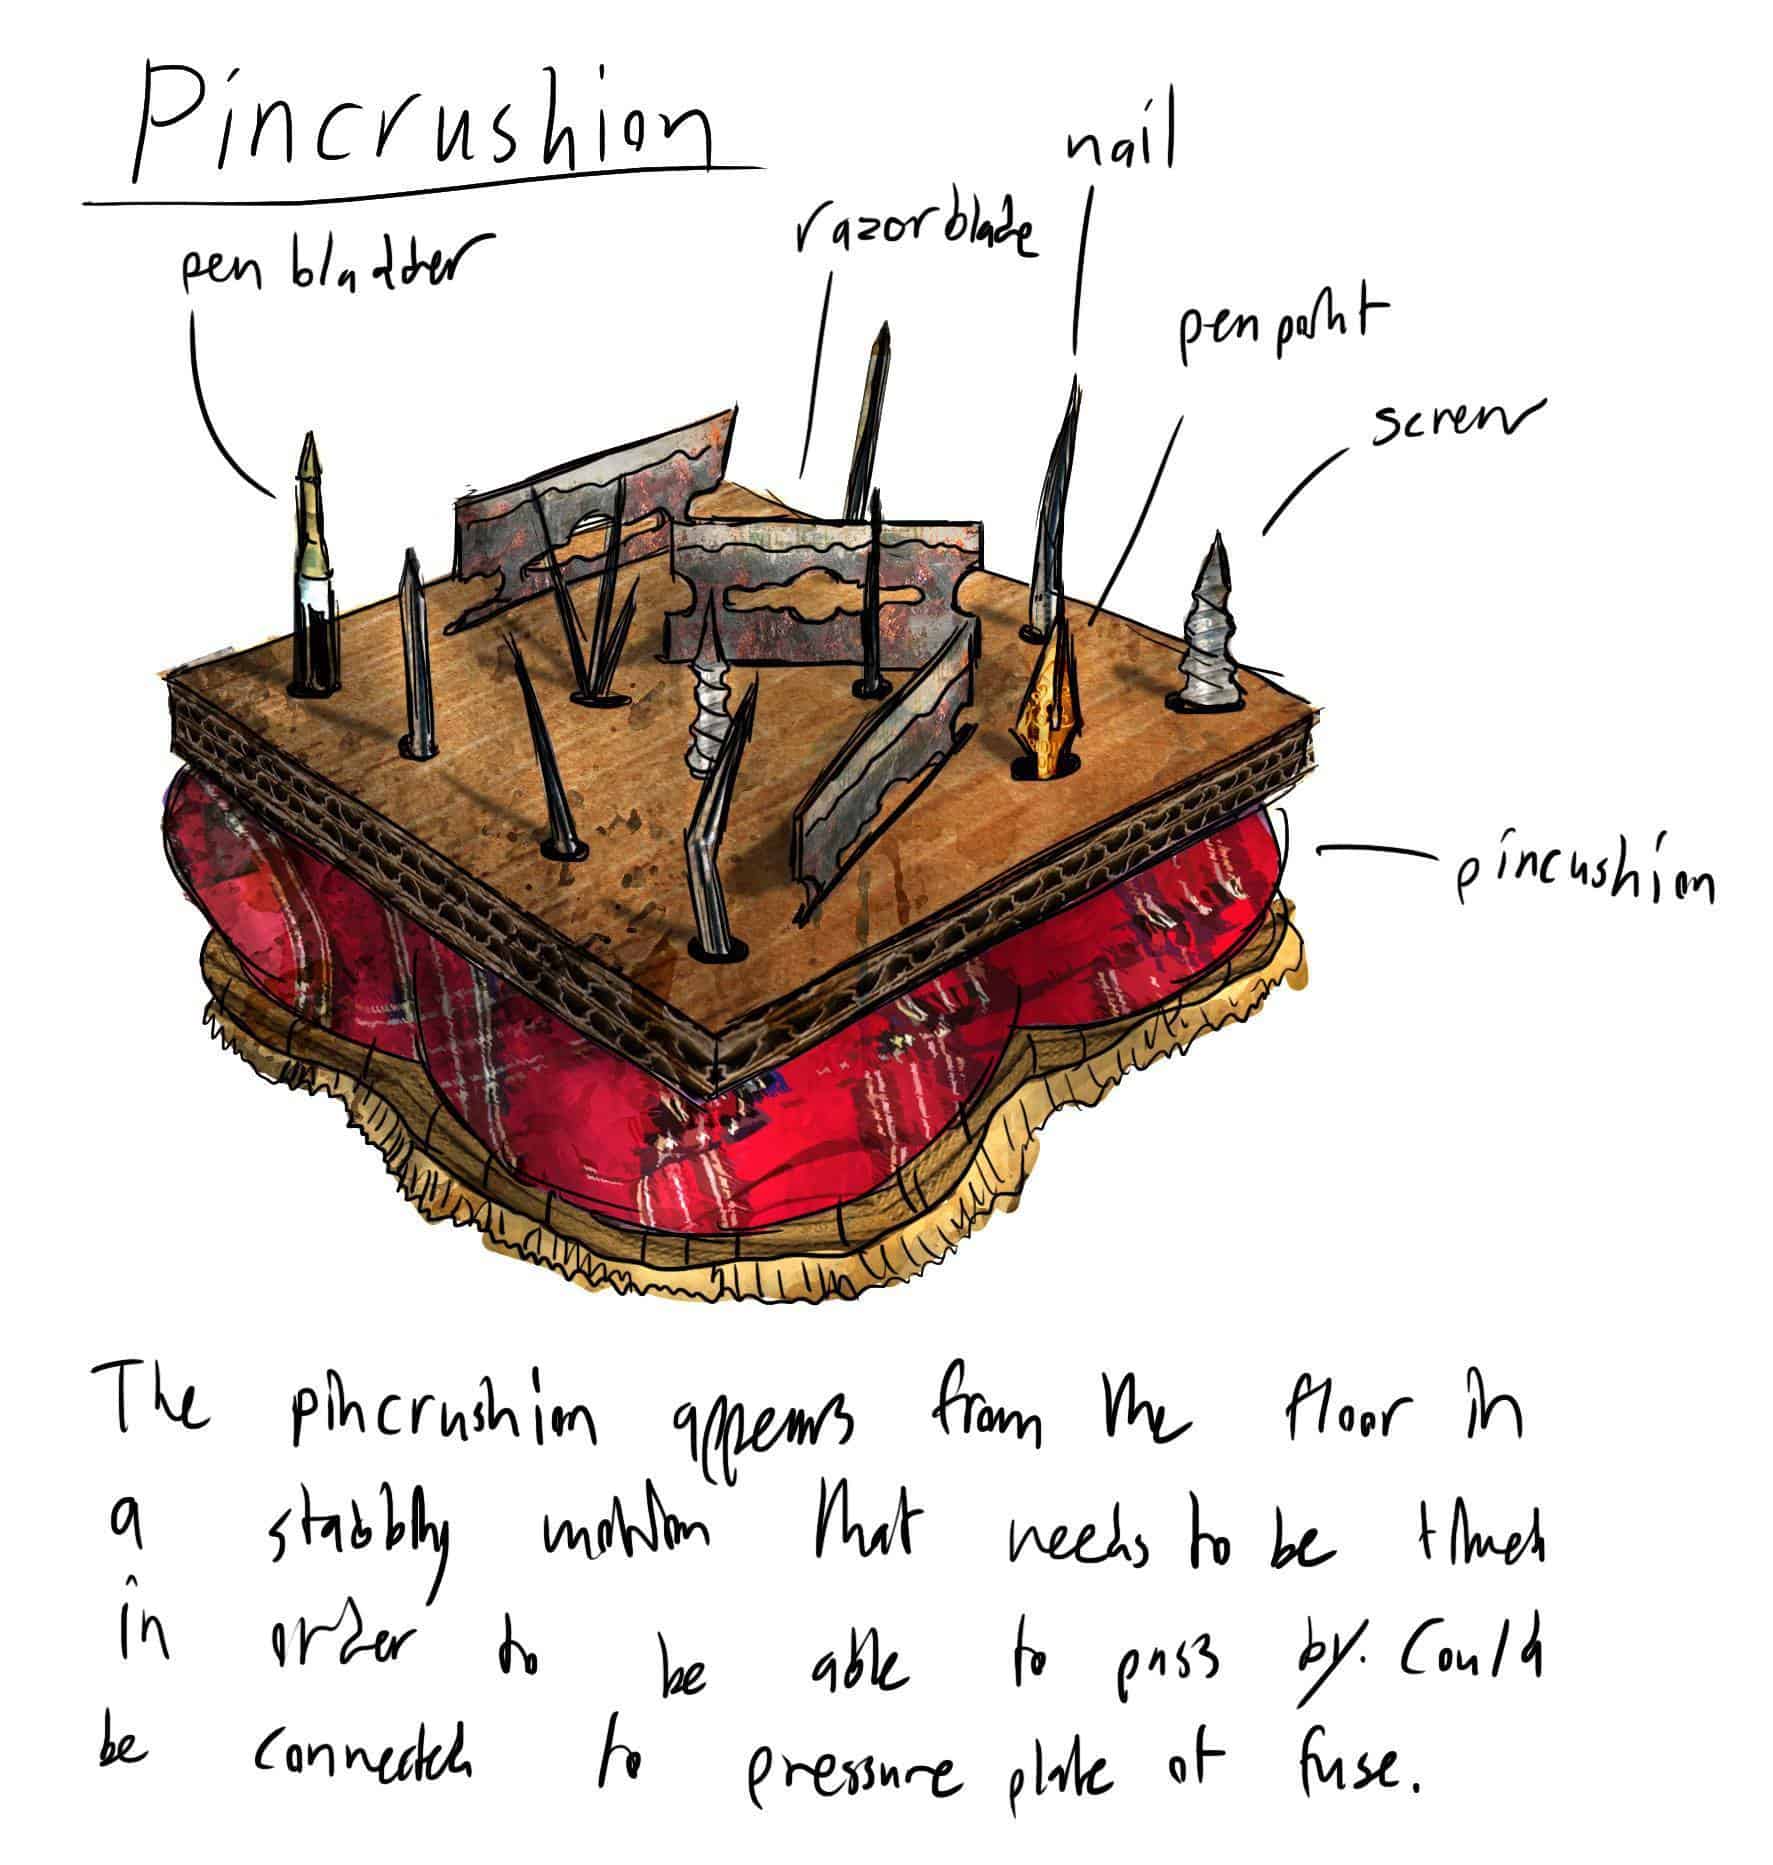 Pincrushion
nail
razorblade
pen bladder
pen point
screw
pincushion
The pincrushion appears from the floor in
a stabbing motion that needs to be timed
in order to be able to pass by. Could
be connected to pressure plate of fuse.